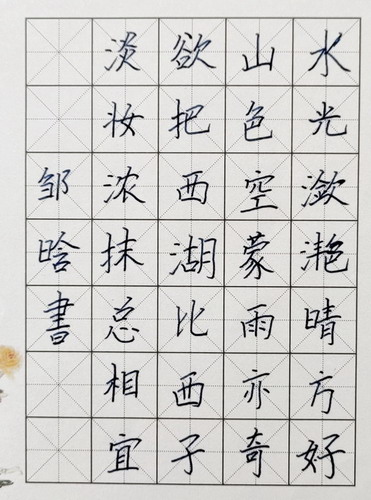 水光潋滟晴方好
山色空蒙雨亦奇
欲把西湖比西子
淡妆浓抹总相宜
邹晗書